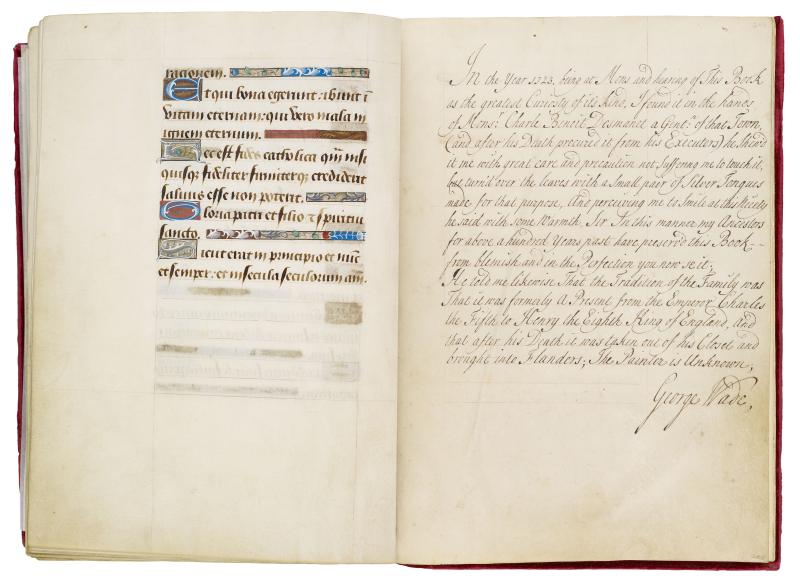 rationem.
Et qui bona egerunt: ibunt i
vitam eternam: qui vero mala in
ignem eternum.
Hec est fides catholica: quam nisi
quisque fideliter firmiterque crediderit
salvus esse non poterit.
Gloria patri et filio et spiritui
sancto.
Sicut erat in principio et nunc
et semper: et in secula seculorum am.
In the Year 1723. being at Mons and hearing of This Book
as the greatest Curiosity of its kind, I found it in the hands
of Monsr. Charle Benoit Desmanet a Gentn. of that Town,
(and after his Death procured it from his Executers) he shew'd
it me with great care and precaution not Suffering me to touch it,
but turn'd over the leaves with a Small pair of Silver Tongues
made for that purpose, And perceiving me to Smile at this Nicety
he said with some Warmth, Sir In this manner my Ancestors
for above a hundred Years past have preserv'd this Book--
from blemish and in the Perfection you now se it;
He told me likewise That the Tradition of the Family was
That it was formerly A Present from the Emperor Charles
the Fifth to Henry the Eighth King of England, And
that after his Death it was taken out of his Closet and
brought into Flanders; The Painter is Unknown;
George Wade,